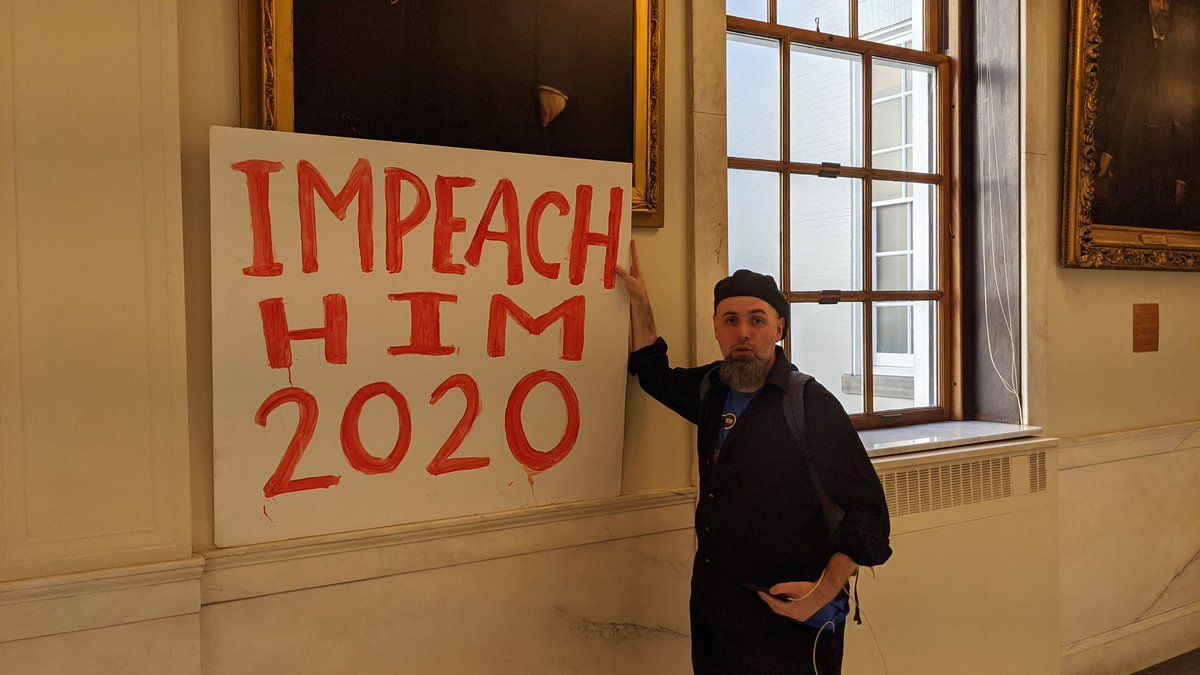 IMPEACH
HIM
2020